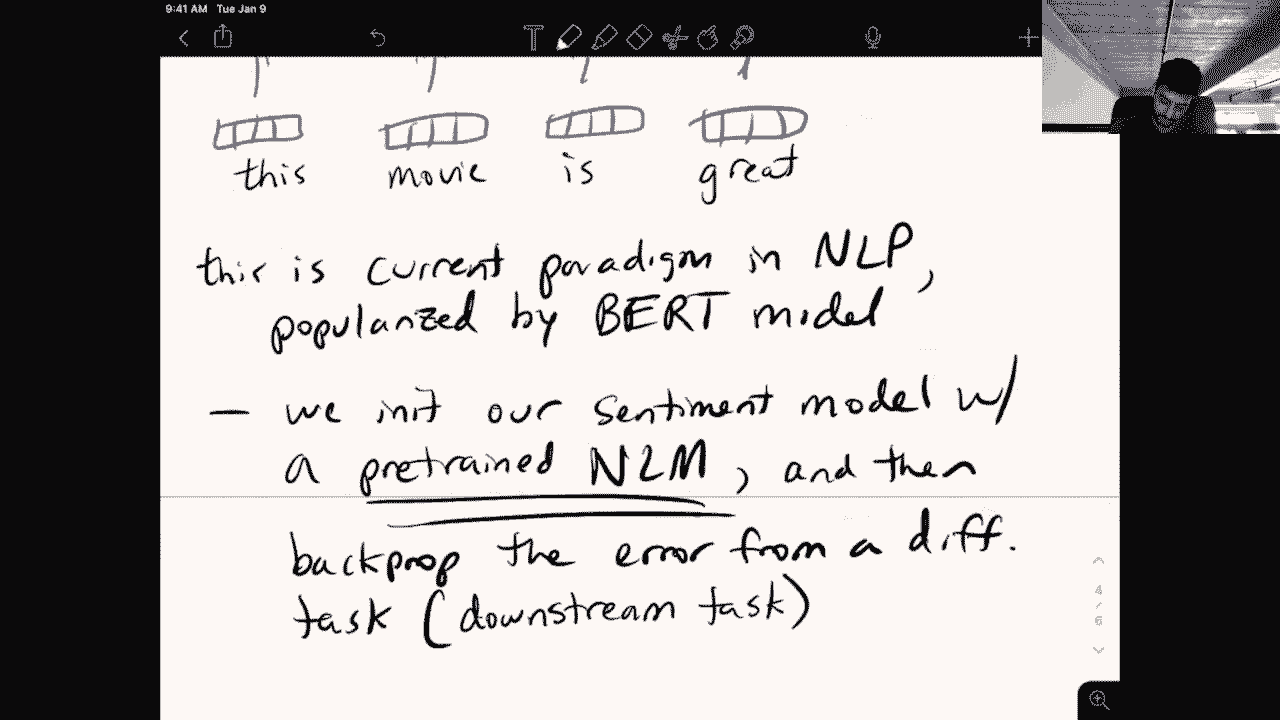 9:41 AM Tue Jan 9
this movie is great
this is current paradigm in NLP,
popularized by BERT model
— we init our sentiment model w/
a pretrained NLM, and then
backprop the error from a diff.
task (downstream task)
4
/
6